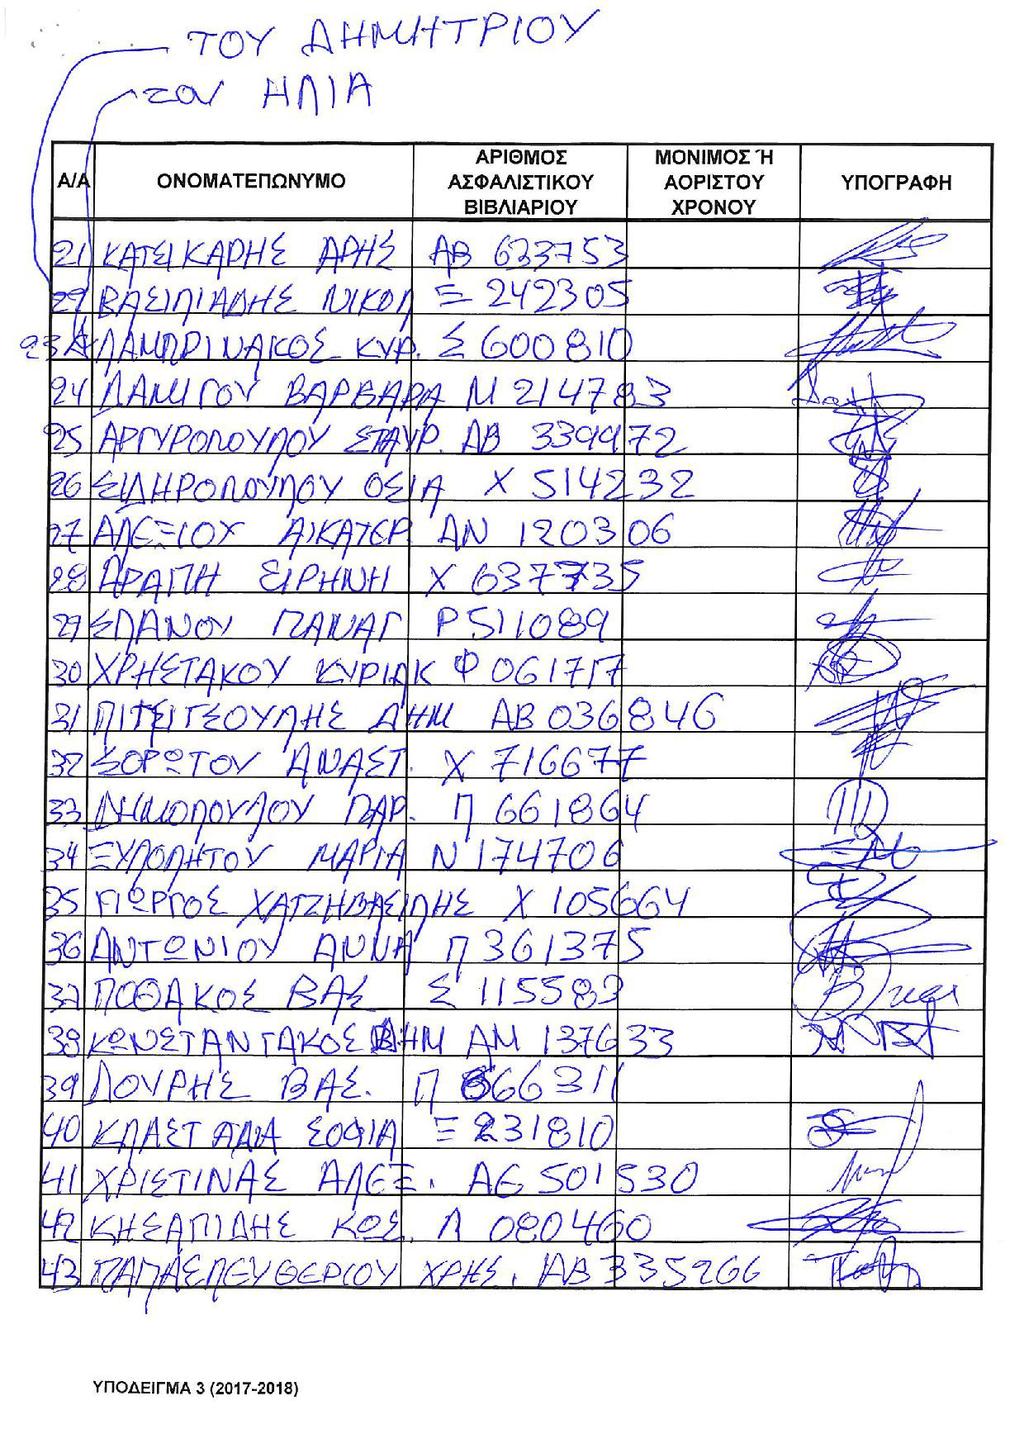 ΤΟΥ ΔΗΜΗΤΡΙΟΥ
του ΗΛΙΑ
Α/Α ΟΝΟΜΑΤΕΠΩΝΥΜΟ ΑΡΙΘΜΟΣ ΑΣΦΑΛΙΣΤΙΚΟΥ ΒΙΒΛΙΑΡΙΟΥ ΜΟΝΙΜΟΣ Ή ΑΟΡΙΣΤΟΥ ΧΡΟΝΟΥ ΥΠΟΓΡΑΦΗ
21 ΚΑΤΣΙΚΑΡΗΣ ΑΡΗΣ ΑΒ 623753
22 ΒΑΣΙΛΙΑΔΗΣ ΝΙΚΟΛ Ξ 242305
23 ΛΑΜΠΡΙΝΑΚΟΣ ΚΥΡ. Σ 600810
24 ΛΑΜΙΓΟΥ ΒΑΡΒΑΡΑ Μ 214783
25 ΑΡΓΥΡΟΠΟΥΛΟΥ ΣΤΑΥΡ. ΑΒ 339972
26 ΣΙΔΗΡΟΠΟΥΛΟΥ ΟΣΙΑ Χ 514232
27 ΑΛΕΞΙΟΥ ΑΙΚΑΤΕΡ ΑΝ 120306
28 ΑΡΑΠΗ ΕΙΡΗΝΗ Χ 637735
29 ΣΠΑΝΟΥ ΠΑΝΑΓ Ρ 511089
30 ΧΡΗΣΤΑΚΟΥ ΚΥΡΙΑΚ Φ 061717
31 ΠΙΤΣΙΓΣΟΥΛΗΣ ΔΗΜ ΑΒ 036846
32 ΣΟΡΩΤΟΥ ΑΝΑΣΤ. Χ 716677
33 ΔΗΜΟΠΟΥΛΟΥ ΠΑΡ. Π 661864
34 ΞΥΛΟΠΗΤΟΥ ΜΑΡΙΑ Ν 174706
35 ΓΙΩΡΓΟΣ ΧΑΤΖΗΒΑΣΙΛΗΣ Χ 105664
36 ΑΝΤΩΝΙΟΥ ΑΝΝΑ Π 361375
37 ΠΟΘΑΚΟΣ ΒΑΣ Σ 115582
38 ΚΩΝΣΤΑΝΤΑΚΟΣ ΔΗΜ ΑΜ 137633
39 ΛΟΥΡΗΣ ΒΑΣ. Π 666311
40 ΚΛΑΣΤΑΔΑ ΣΟΦΙΑ Ξ 231810
41 ΧΡΙΣΤΙΝΑΣ ΑΛΕΞ. ΑΕ 501530
42 ΚΗΣΑΠΙΔΗΣ ΚΩΣ. Λ 080460
43 ΠΑΠΑΕΛΕΥΘΕΡΙΟΥ ΧΡΗΣ. ΑΒ 335266
ΥΠΟΔΕΙΓΜΑ 3 (2017-2018)